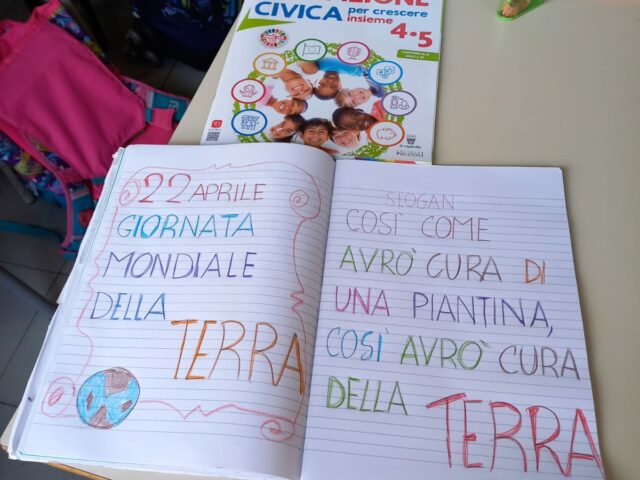 CIVICA per crescere
insieme
4•5
22 APRILE
GIORNATA
MONDIALE
DELLA
TERRA
SLOGAN
COSÌ COME
AVRÒ CURA DI
UNA PIANTINA,
COSÌ AVRÒ CURA
DELLA TERRA